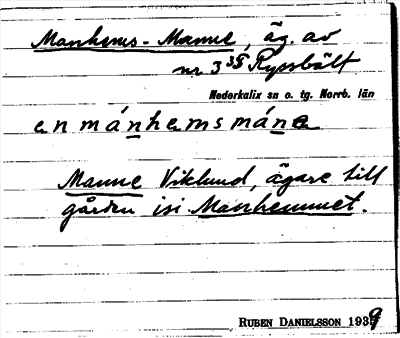 Manhems-Manne, äg. av
nr 3³⁵ Ryssbält
Nederkalix sn o. tg. Norrb. län
en mánhemsmána
Manne Viklund, ägare till
gården isi Manhemmet.
RUBEN DANIELSSON 1939